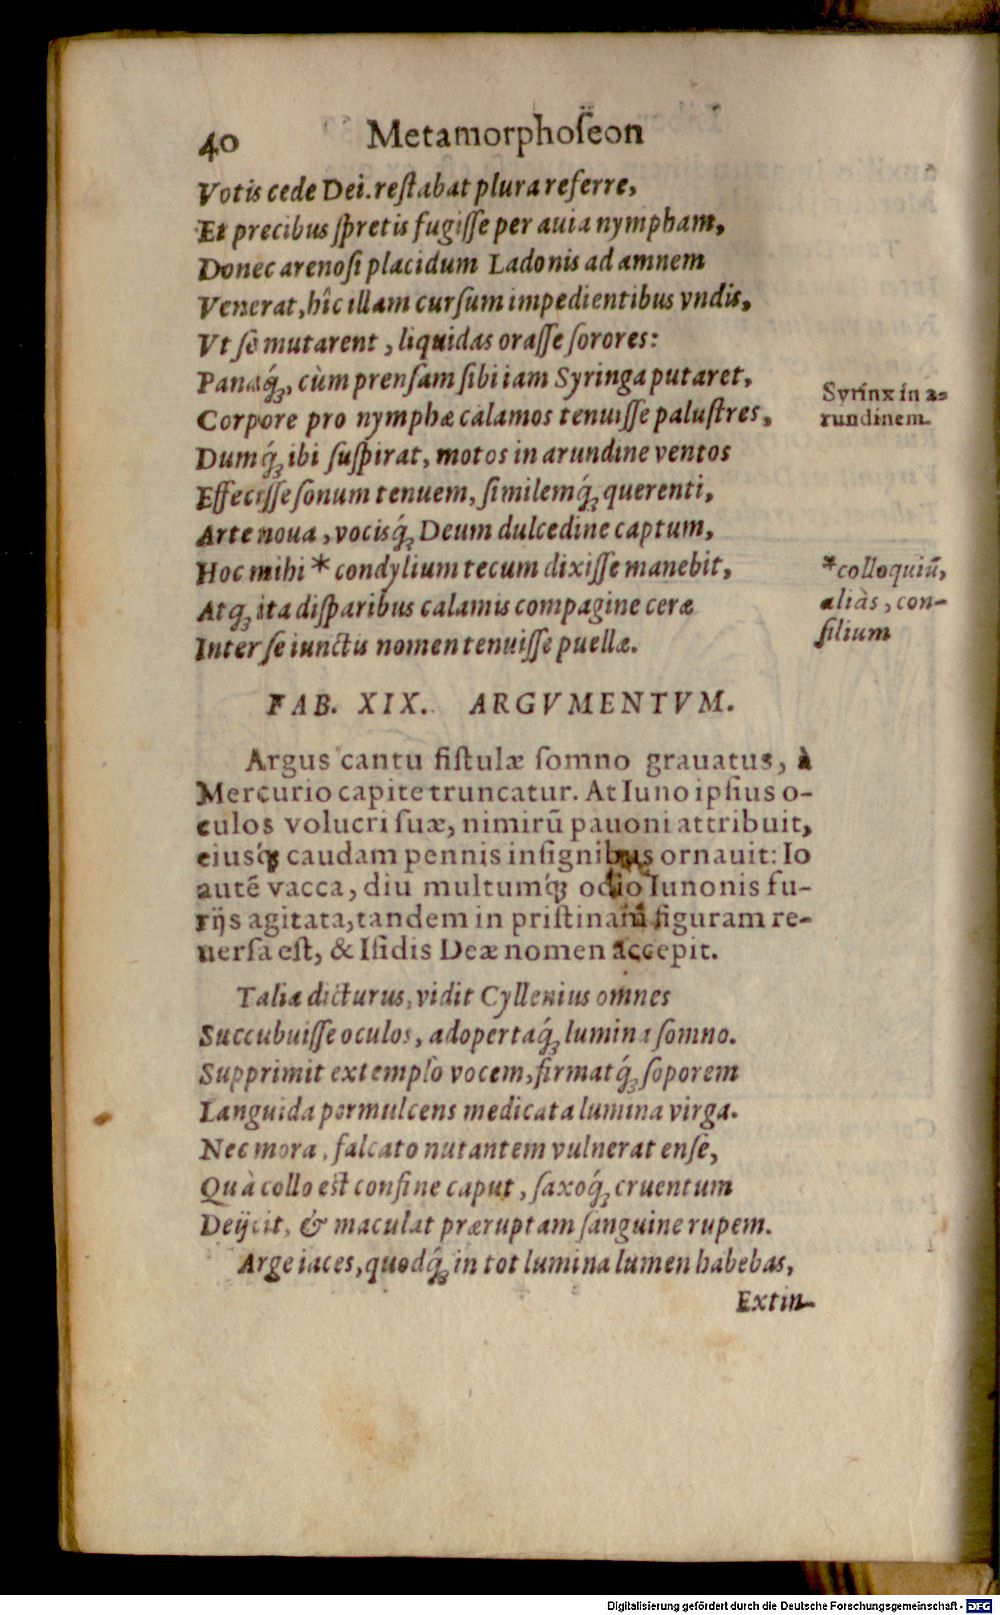 40 Metamorphoſeon
Votis cede Dei. reſtabat plura referre,
Et precibus ſpretis fugiſſe per auia nympham,
Donec arenoſi placidum Ladonis ad amnem
Venerat, hîc illam curſum impedientibus vndis,
Vt ſe mutarent, liquidas oraſſe ſorores:
Panaq́;, cùm prenſam ſibi iam Syringa putaret,
Corpore pro nymphæ calamos tenuiſſe paluſtres,
Syrinx in a-
rundinem.
Dumq́; ibi ſuſpirat, motos in arundine ventos
Effeciſſe ſonum tenuem, ſimilemq́; querenti,
Arte noua, vocisq́; Deum dulcedine captum,
Hoc mihi * condylium tecum dixiſſe manebit,
*colloquiũ,
aliàs, con-
ſilium
Atq; ita diſparibus calamis compagine ceræ
Inter ſe iunctis nomen tenuiſſe puellæ.
FAB. XIX. ARGVMENTVM.
Argus cantu fiſtulæ ſomno grauatus, à
Mercurio capite truncatur. At Iuno ipſius o-
culos volucri ſuæ, nimirũ pauoni attribuit,
eiusq́; caudam pennis inſignibus ornauit: Io
autẽ vacca, diu multumq́; odio Iunonis fu-
rijs agitata, tandem in priſtinam figuram re-
uerſa eſt, & Iſidis Deæ nomen accepit.
Talia dicturus, vidit Cyllenius omnes
Succubuiſſe oculos, adopertaq́; lumina ſomno.
Supprimit extemplò vocem, firmatq́; ſoporem
Languida permulcens medicata lumina virga.
Nec mora, falcato nutantem vulnerat enſe,
Quà collo eſt confine caput, ſaxoq́; cruentum
Deijcit, & maculat præruptam ſanguine rupem.
Arge iaces, quodq́; in tot lumina lumen habebas,
Extin-
Digitalisierung gefördert durch die Deutsche Forschungsgemeinschaft - DFG